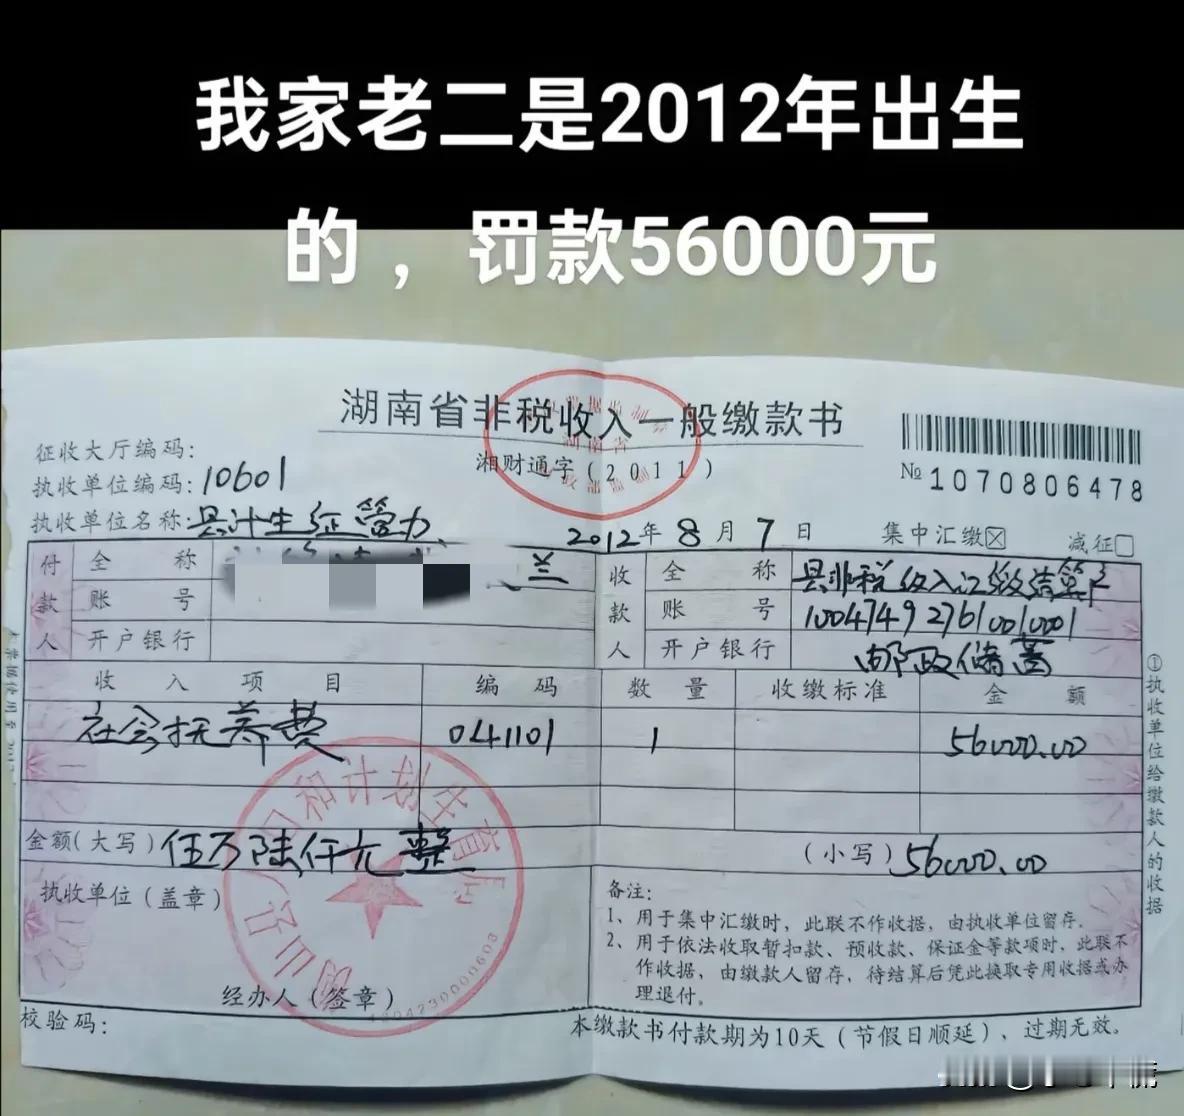 我家老二是2012年出生
的，罚款56000元
湖南省非税收入一般缴款书
湘财通字（2011）
征收大厅编码：
执收单位编码：10601
执收单位名称：县计生征管办
№ 1070806478
2012年 8 月 7 日 集中汇缴☒ 减征□
付款人 全称 兰
账号
开户银行
收款人 全称 县非税收入汇缴结算户
账号 100474927610010001
开户银行 邮政储蓄
收入项目 编码 数量 收缴标准 金额
社会抚养费 041101 1 56000.00
金额（大写）伍万陆仟元整 （小写）56000.00
执收单位（盖章）
人口和计划生育局
经办人（签章）
备注：
1、用于集中汇缴时，此联不作收据，由执收单位留存.
2、用于依法收取暂扣款、预收款、保证金等款项时，此联不
作收据，由缴款人留存，待结算后凭此换取专用收据或办
理退付。
校验码：
本缴款书付款期为10天（节假日顺延），过期无效。
①执收单位给缴款人的收据